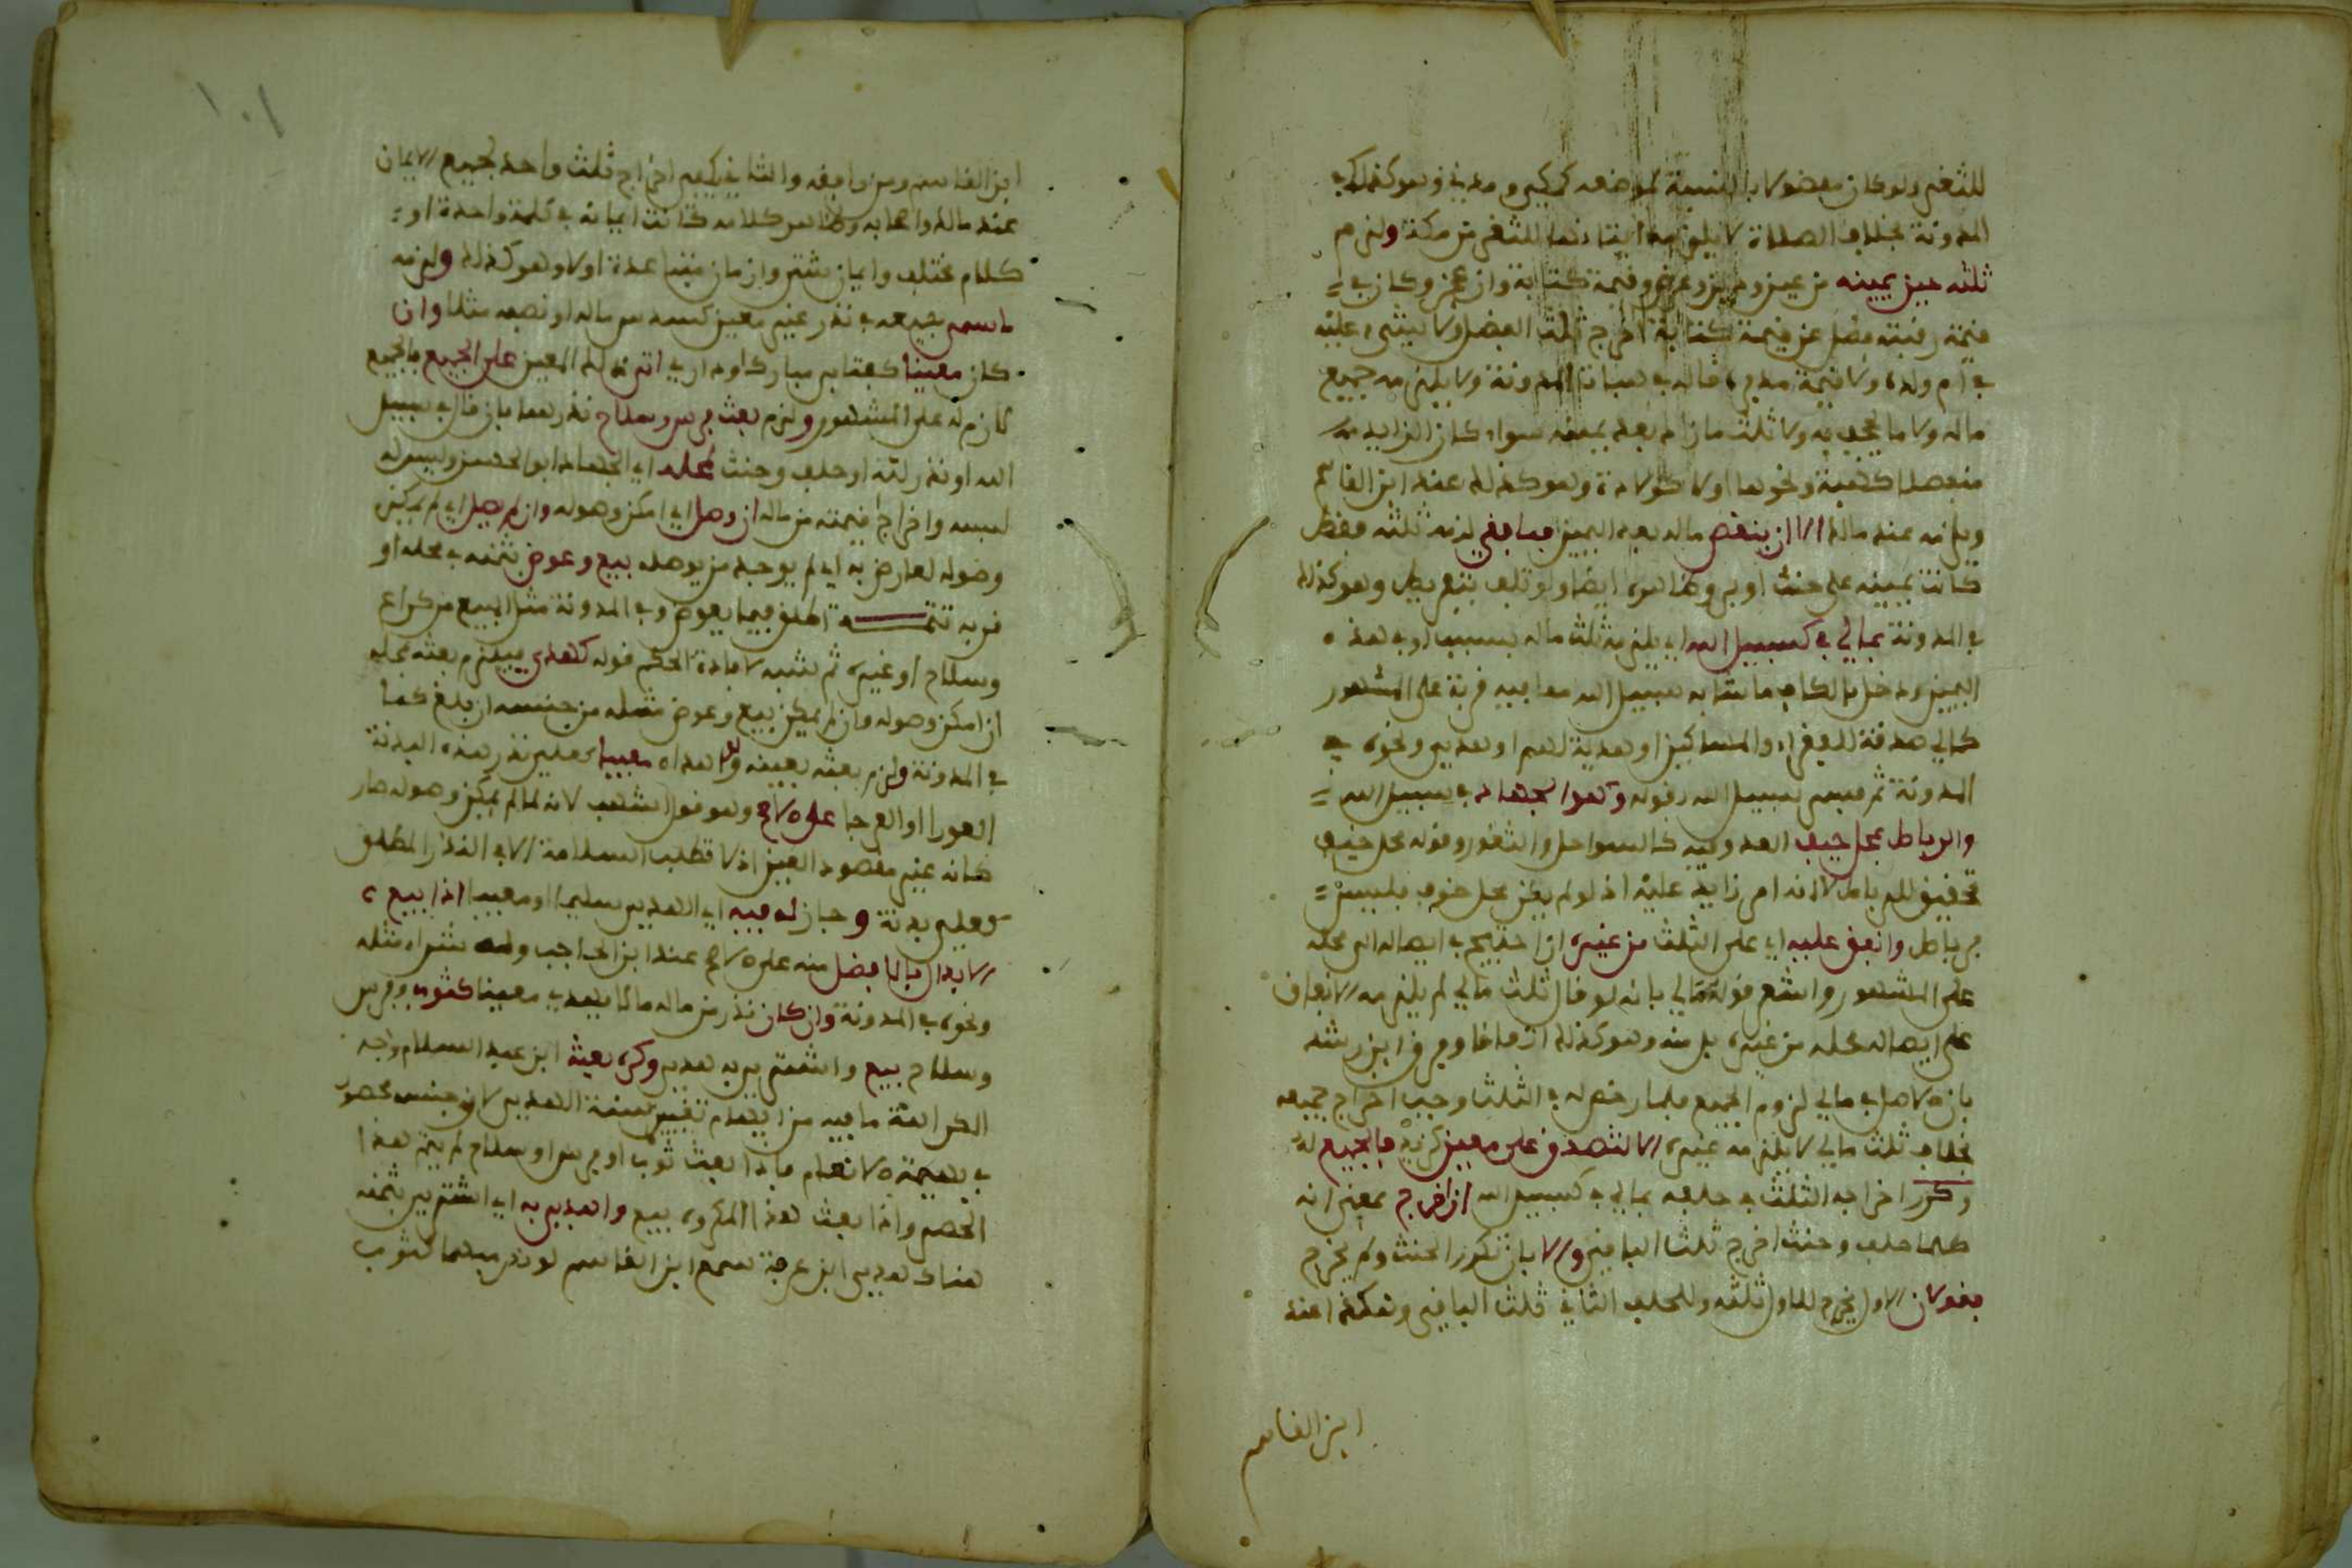 للثغر ولو كان مفضولا بالنسبة لموضعه كمكي ومدني وهو كذلك في
المدونة بخلاف الصلاة لا يلزمه اتيانها للثغر من مكة ولزم
ثلثه حين يمينه من عين ودين وعرض وقيمة كتابة وان عجز وكان في
قيمة رقبته فضل عن قيمة كتابة اخرج ثلث الفضل ولا شيء عليه
في ام ولده ولا قيمة مدبره قاله في هبات المدونة ولا يلزمه جميع
ماله ولا ما يجحف به ولا ثلث ما زاد بعد يمينه سواء كان الزايد
منفصلا كهبة ونحوها اولا كولادة وهو كذلك عند ابن القاسم
ويلزمه عند مالك الا ان ينقص ماله بعد اليمين فما بقي لزمه ثلثه فقط
كانت يمينه على حنث او بر وظاهره ايضا ولو تلف بتفريط وهو كذلك
في المدونة بمالي في كسبيل الله اي يلزمه ثلث ماله بسبب او في هذه
اليمين ودخل بالكاف ما شابه سبيل الله مما فيه قربة على المشهور
كمالي صدقة للفقراء والمساكين او هدية لهم او هدي ونحوه في
المدونة ثم فسر سبيل الله بقوله وهو الجهاد في سبيل الله
والرباط بمحل خيف العدو فيه كالسواحل والثغور وقوله محل خيف
تحقيق للرباط لا انه امر زايد عليه اذ لو لم يكن محل خوف فليس
برباط وانفق عليه اي على الثلث من غيره ان احتيج في ايصاله الى محله
على المشهور واشعر قوله مالي بانه لو قال ثلث مالي لم يلزمه الانفاق
على ايصاله محله من غيره بل منه وهو كذلك اتفاقا وفرق ابن رشد
بان الاصل في مالي لزوم الجميع فلما رخص له في الثلث وجب اخراج جميعه
بخلاف ثلث مالي لا يلزمه غيره الا لتصدق على معين كزيد فالجميع له
وكرر اخراجه الثلث في حلفه بمالي في كسبيل الله ان اخرج بمعنى انه
كلما حلف وحنث اخرج ثلث الباقي والا بان تكرر الحنث ولم يخرج
فقولان الاول يخرج للاول ثلثه وللحلف الثاني ثلث الباقي وهكذا عند
ابن القاسم
١٠١
ابن القاسم ومن وافقه والثاني يكفي اخراج ثلث واحد لجميع الايمان
عند مالك واصحابه وظاهر كلامه كانت ايمانه في كلمة واحدة او
كلام مختلف وايمان شتى وازمان متباعدة اولا وهو كذلك ولزمه
ما سمى جميعه في نذر غير معين كسدس ماله او نصفه مثلا وان
كان معينا كعتابر مبارك او داري اتى ذلك المعين على الجميع فالجميع
لازم له على المشهور ولزم بعث فرس وسلاح نذرهما بان قال في سبيل
الله او نذر لله او حلف وحنث لمحله اي الجهاد ابو الحسن وليس له
لبسه واخراج قيمته من ماله ان وصل اي امكن وصوله وان لم يصل اي لم يمكن
وصوله لعارض به اي لم يوجد من يوصله بيع وعوض بثمنه في محله او
قربه تتمـة اطلق فيما يعوض وفي المدونة مثل المبيع من كراع
وسلاح او غيره ثم شبه لافادة الحكم قوله كهدي فيلزم بعثه بمحله
ان امكن وصوله فان لم يمكن بيع وعوض مثله من جنسه ان بلغ كما
في المدونة ولزم بعثه بعينه ولو اهداه معيبا كعلي نذر هذه البدنة
العورا او العرجا على الاصح وهو قول اشهب لانه لما لم يمكن وصوله صار
كانه غير مقصود العين اذ لا تطلب السلامة الا في النذر المطلق
فعلي بدنة وجاز له فيه اي الهدي سليما او معيبا اذا بيع
الابدال بالافضل منه على الاصح عند ابن الحاجب وله شراء مثله
ونحوه في المدونة وان كان نذر من ماله مالا يهدى معينا كثوب وفرس
وسلاح بيع واشتري به هدي وكره بعثه ابن عبد السلام وجه
الكراهة ما فيه من ايهام تغيير سنة الهدي لان جنس محصور
في بهيمة الانعام فاذا بعث ثوب او فرس او سلاح لم يتم هذا
الحصر واذا بعث هذا المكروه بيع واهدي به اي اشتري بثمنه
هناك هدي ابن عرفة سمع ابن القاسم لو نذر مبهما كثوب